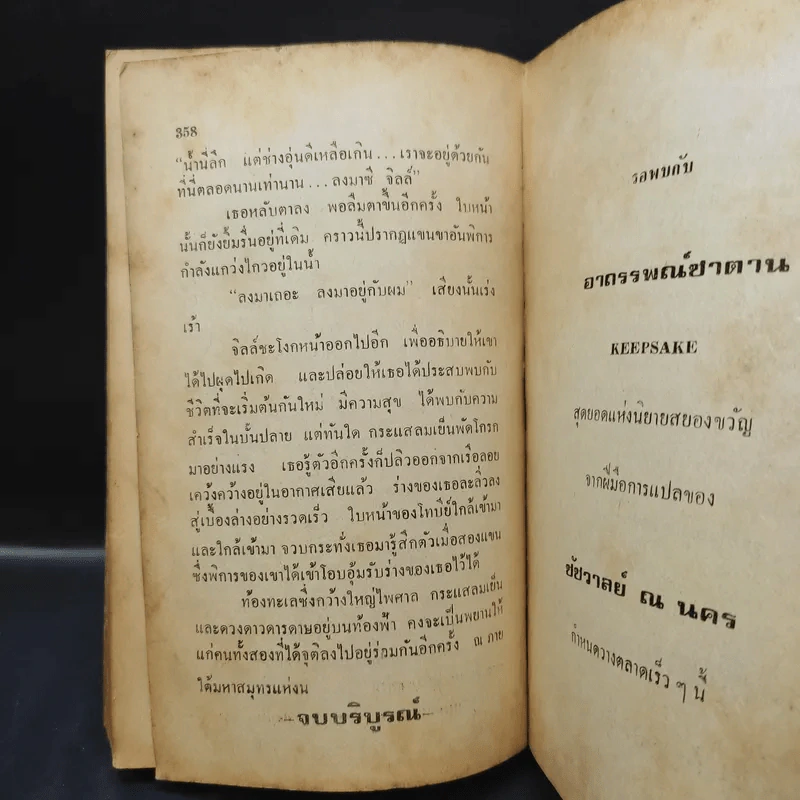 358
“น้ำนี่ลึก แต่ช่างอุ่นดีเหลือเกิน...เราจะอยู่ด้วยกัน
ที่นี่ตลอดนานเท่านาน...ลงมาซี จิลล์”
เธอหลับตาลง พอลืมตาขึ้นอีกครั้ง ใบหน้า
นั้นก็ยังยิ้มรื่นอยู่ที่เดิม คราวนี้ปรากฏแขนขาอันพิการ
กำลังแกว่งไกวอยู่ในน้ำ
“ลงมาเถอะ ลงมาอยู่กับผม” เสียงนั้นเร่ง
เร้า
จิลล์ชะโงกหน้าออกไปอีก เพื่ออธิบายให้เขา
ได้ไปผุดไปเกิด และปล่อยให้เธอได้ประสบพบกับ
ชีวิตที่จะเริ่มต้นกันใหม่ มีความสุข ได้พบกับความ
สำเร็จในบั้นปลาย แต่ทันใด กระแสลมเย็นพัดโกรก
มาอย่างแรง เธอรู้ตัวอีกครั้งก็ปลิวออกจากเรือลอย
เคว้งคว้างอยู่ในอากาศเสียแล้ว ร่างของเธอละลิ่วลง
สู่เบื้องล่างอย่างรวดเร็ว ใบหน้าของโทบีย์ใกล้เข้ามา
และใกล้เข้ามา จวบกระทั่งเธอมารู้สึกตัวเมื่อสองแขน
ซึ่งพิการของเขาได้เข้าโอบอุ้มรับร่างของเธอไว้ได้
ท้องทะเลซึ่งกว้างใหญ่ไพศาล กระแสลมเย็น
และดวงดาวดารดาษอยู่บนท้องฟ้า คงจะเป็นพยานให้
แก่คนทั้งสองที่ได้จุติลงไปอยู่ร่วมกันอีกครั้ง ณ ภาย
ใต้มหาสมุทรแห่งน
—จบบริบูรณ์—
รอพบกับ
อาถรรพณ์ซาตาน
KEEPSAKE
สุดยอดแห่งนิยายสยองขวัญ
จากฝีมือการแปลของ
ชัชวาลย์ ณ นคร
กำหนดวางตลาดเร็ว ๆ นี้